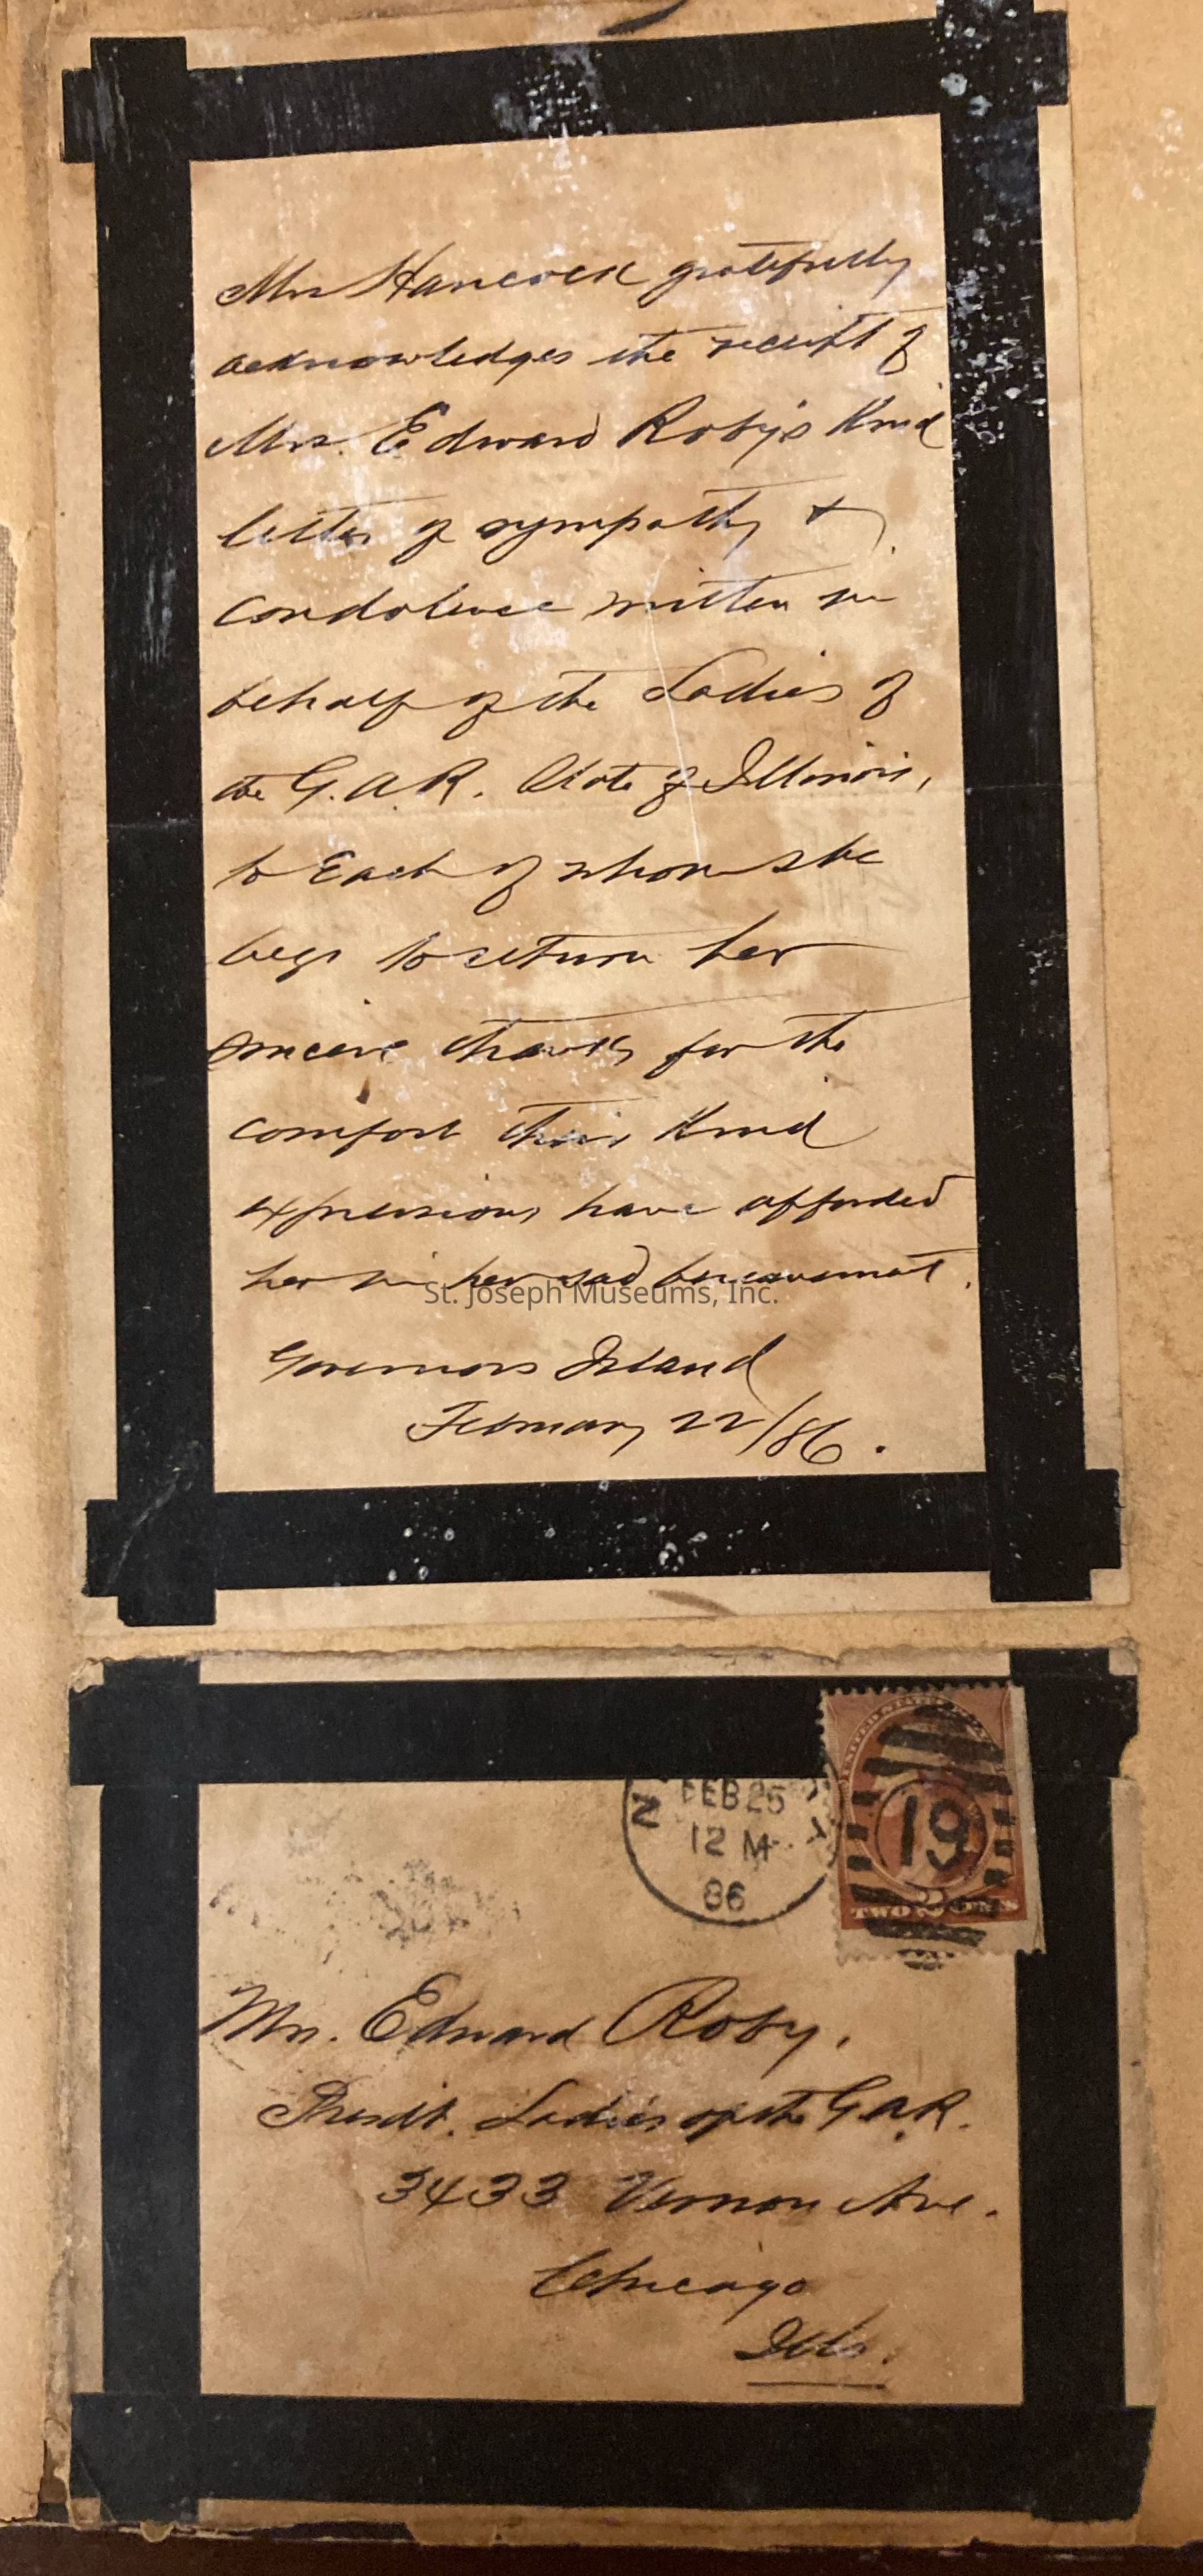 Mrs Hancock gratefully
acknowledges the receipt of
Mrs. Edward Roby's kind
letter of sympathy &
condolence written in
behalf of the Ladies of
the G.A.R. State of Illinois,
to Each of whom she
begs to return her
sincere thanks for the
comfort their kind
expressions have afforded
her in her sad bereavement.
St. Joseph Museums, Inc.
Governors Island
February 22/86.
N
FEB 25
12 M
86
Y
UNITED STATES
19
2
TWO CENTS
Mrs. Edward Roby,
Presdt. Ladies of the G.A.R.
3433 Vernon Ave.
Chicago
Ills.